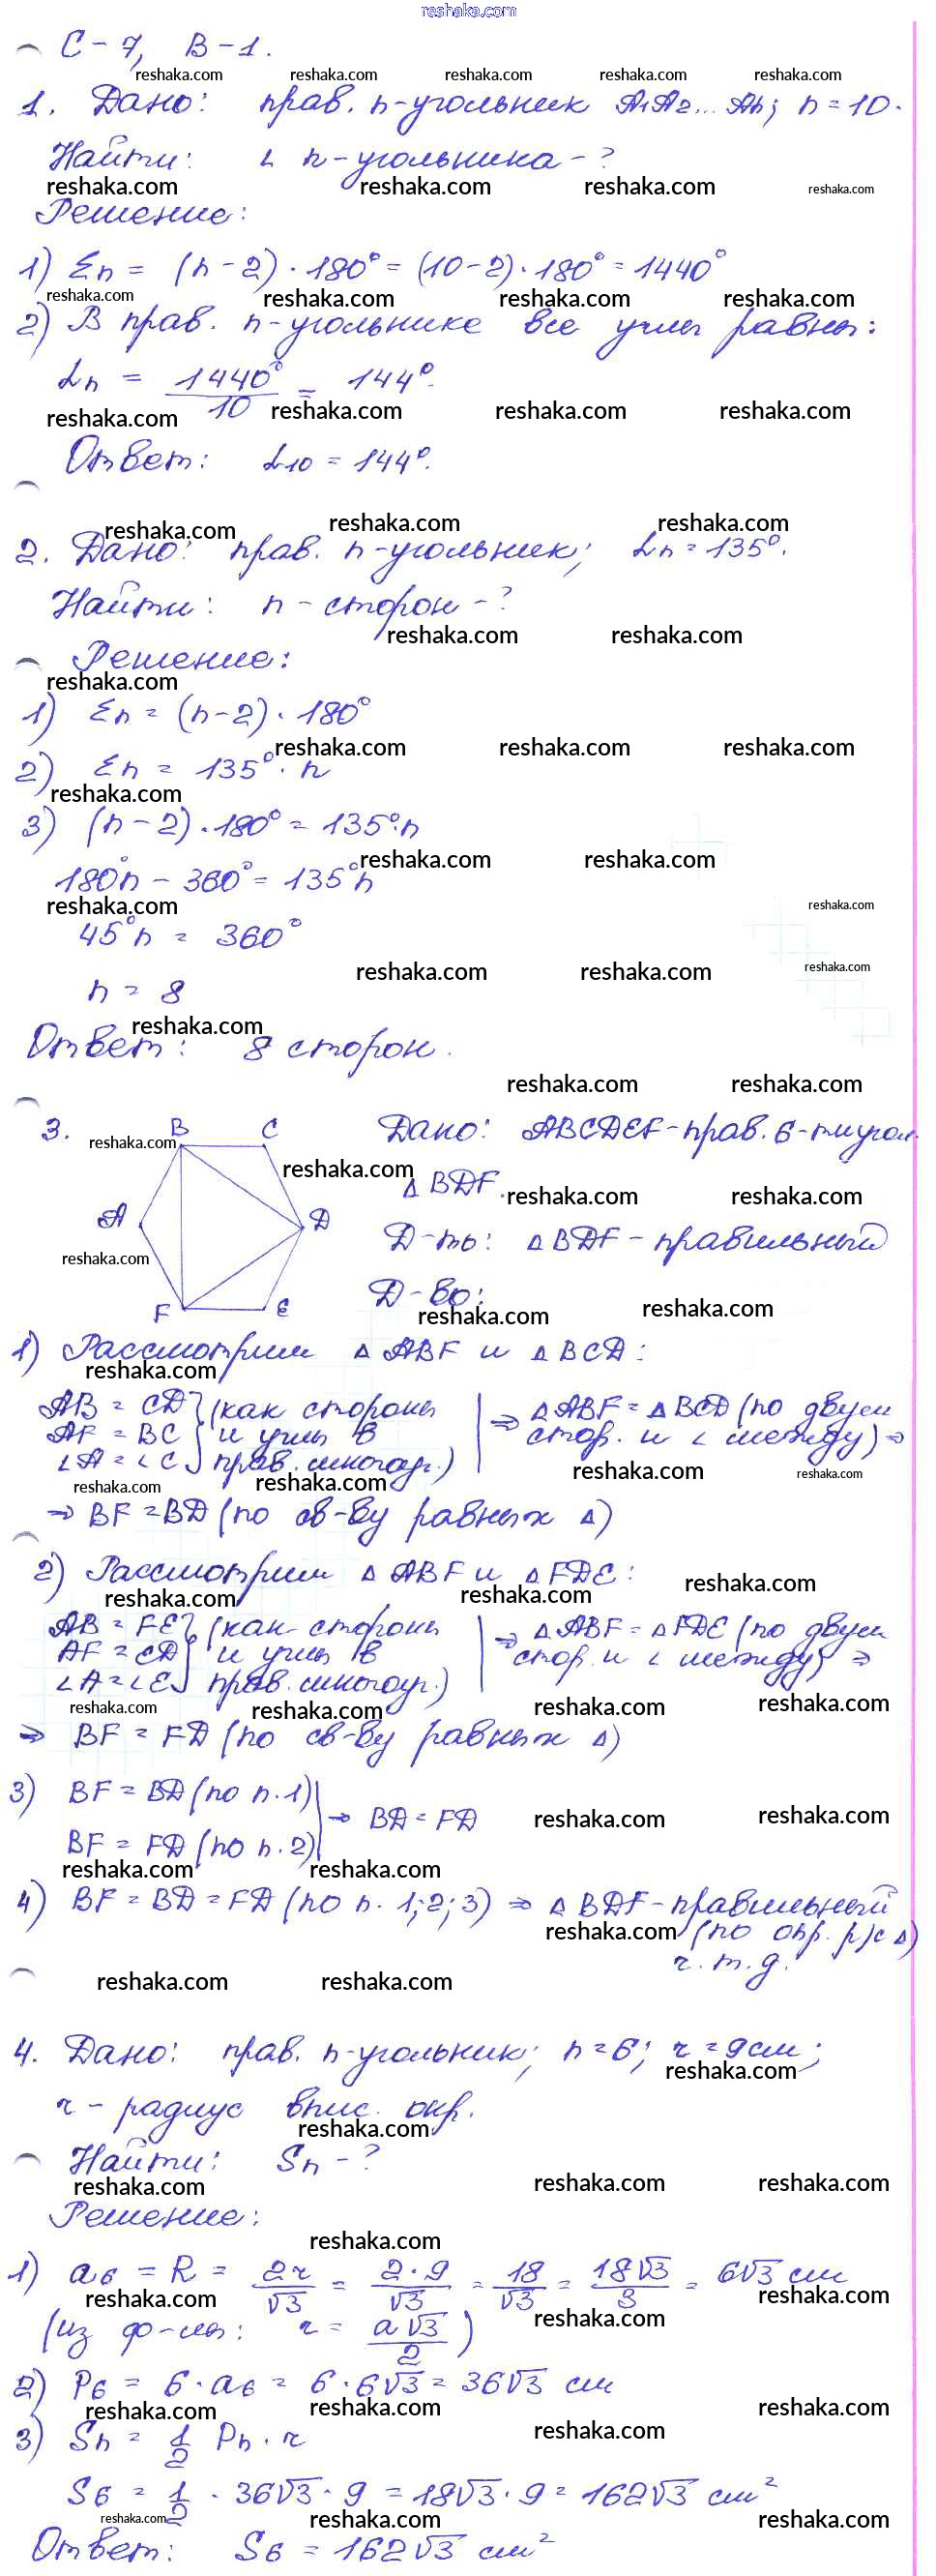 reshaka.com
С-7, В-1.
1. Дано: прав. n-угольник A₁A₂... Aₙ; n = 10.
Найти: ∠ n-угольника - ?
Решение:
1) Σn = (n - 2) · 180° = (10 - 2) · 180° = 1440°
2) В прав. n-угольнике все углы равны:
∠n = 1440°/10 = 144°.
Ответ: ∠10 = 144°.
2. Дано: прав. n-угольник; ∠n = 135°.
Найти: n - сторон - ?
Решение:
1) Σn = (n-2) · 180°
2) Σn = 135° · n
3) (n - 2) · 180° = 135° · n
180°n - 360° = 135°n
45°n = 360°
n = 8
Ответ: 8 сторон.
3. Дано: ABCDEF - прав. 6-тиугол.
B C
A D
F E
△ BDF.
Д-ть: △ BDF - правильный
Д-во:
1) Рассмотрим △ ABF и △ BCD:
AB = CD } (как стороны | ⇒ △ ABF = △ BCD (по двум
AF = BC } и углы в | стор. и ∠ между) ⇒
∠A = ∠C } прав. многоуг.)
⇒ BF = BD (по св-ву равных △)
2) Рассмотрим △ ABF и △ FDE:
AB = FE } (как стороны | ⇒ △ ABF = △ FDE (по двум
AF = CD } и углы в | стор. и ∠ между) ⇒
∠A = ∠E } прав. многоуг.)
⇒ BF = FD (по св-ву равных △)
3) BF = BD (по п. 1) | ⇒ BD = FD
BF = FD (по п. 2) |
4) BF = BD = FD (по п. 1; 2; 3) ⇒ △ BDF - правильный
(по опр. р/с △)
ч. т. д.
4. Дано: прав. n-угольник; n = 6; r = 9 см;
r - радиус впис. окр.
Найти: Sn - ?
Решение:
1) a₆ = R = 2r/√3 = 2·9/√3 = 18/√3 = 18√3/3 = 6√3 см
(из ф-лы: r = a√3/2)
2) P₆ = 6 · a₆ = 6 · 6√3 = 36√3 см
3) Sn = 1/2 Pn · r
S₆ = 1/2 · 36√3 · 9 = 18√3 · 9 = 162√3 см²
Ответ: S₆ = 162√3 см²